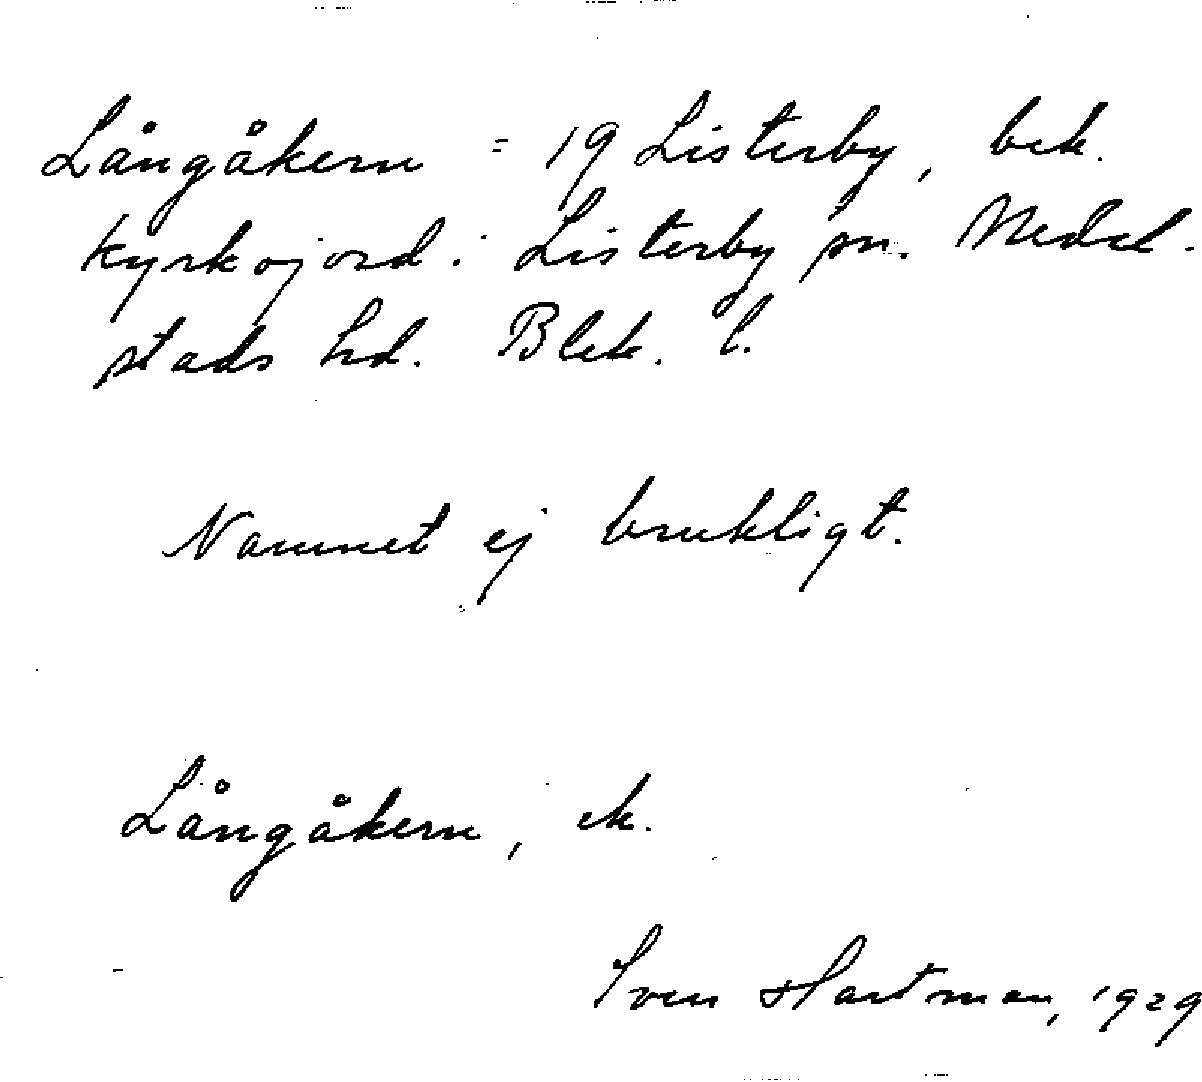 Långåkern = 19 Listerby, bek.
kyrkojord i Listerby sn. Medel-
stads hd. Blek. l.
Namnet ej brukligt.
Långåkern, ek.
Sven Hartman, 1929